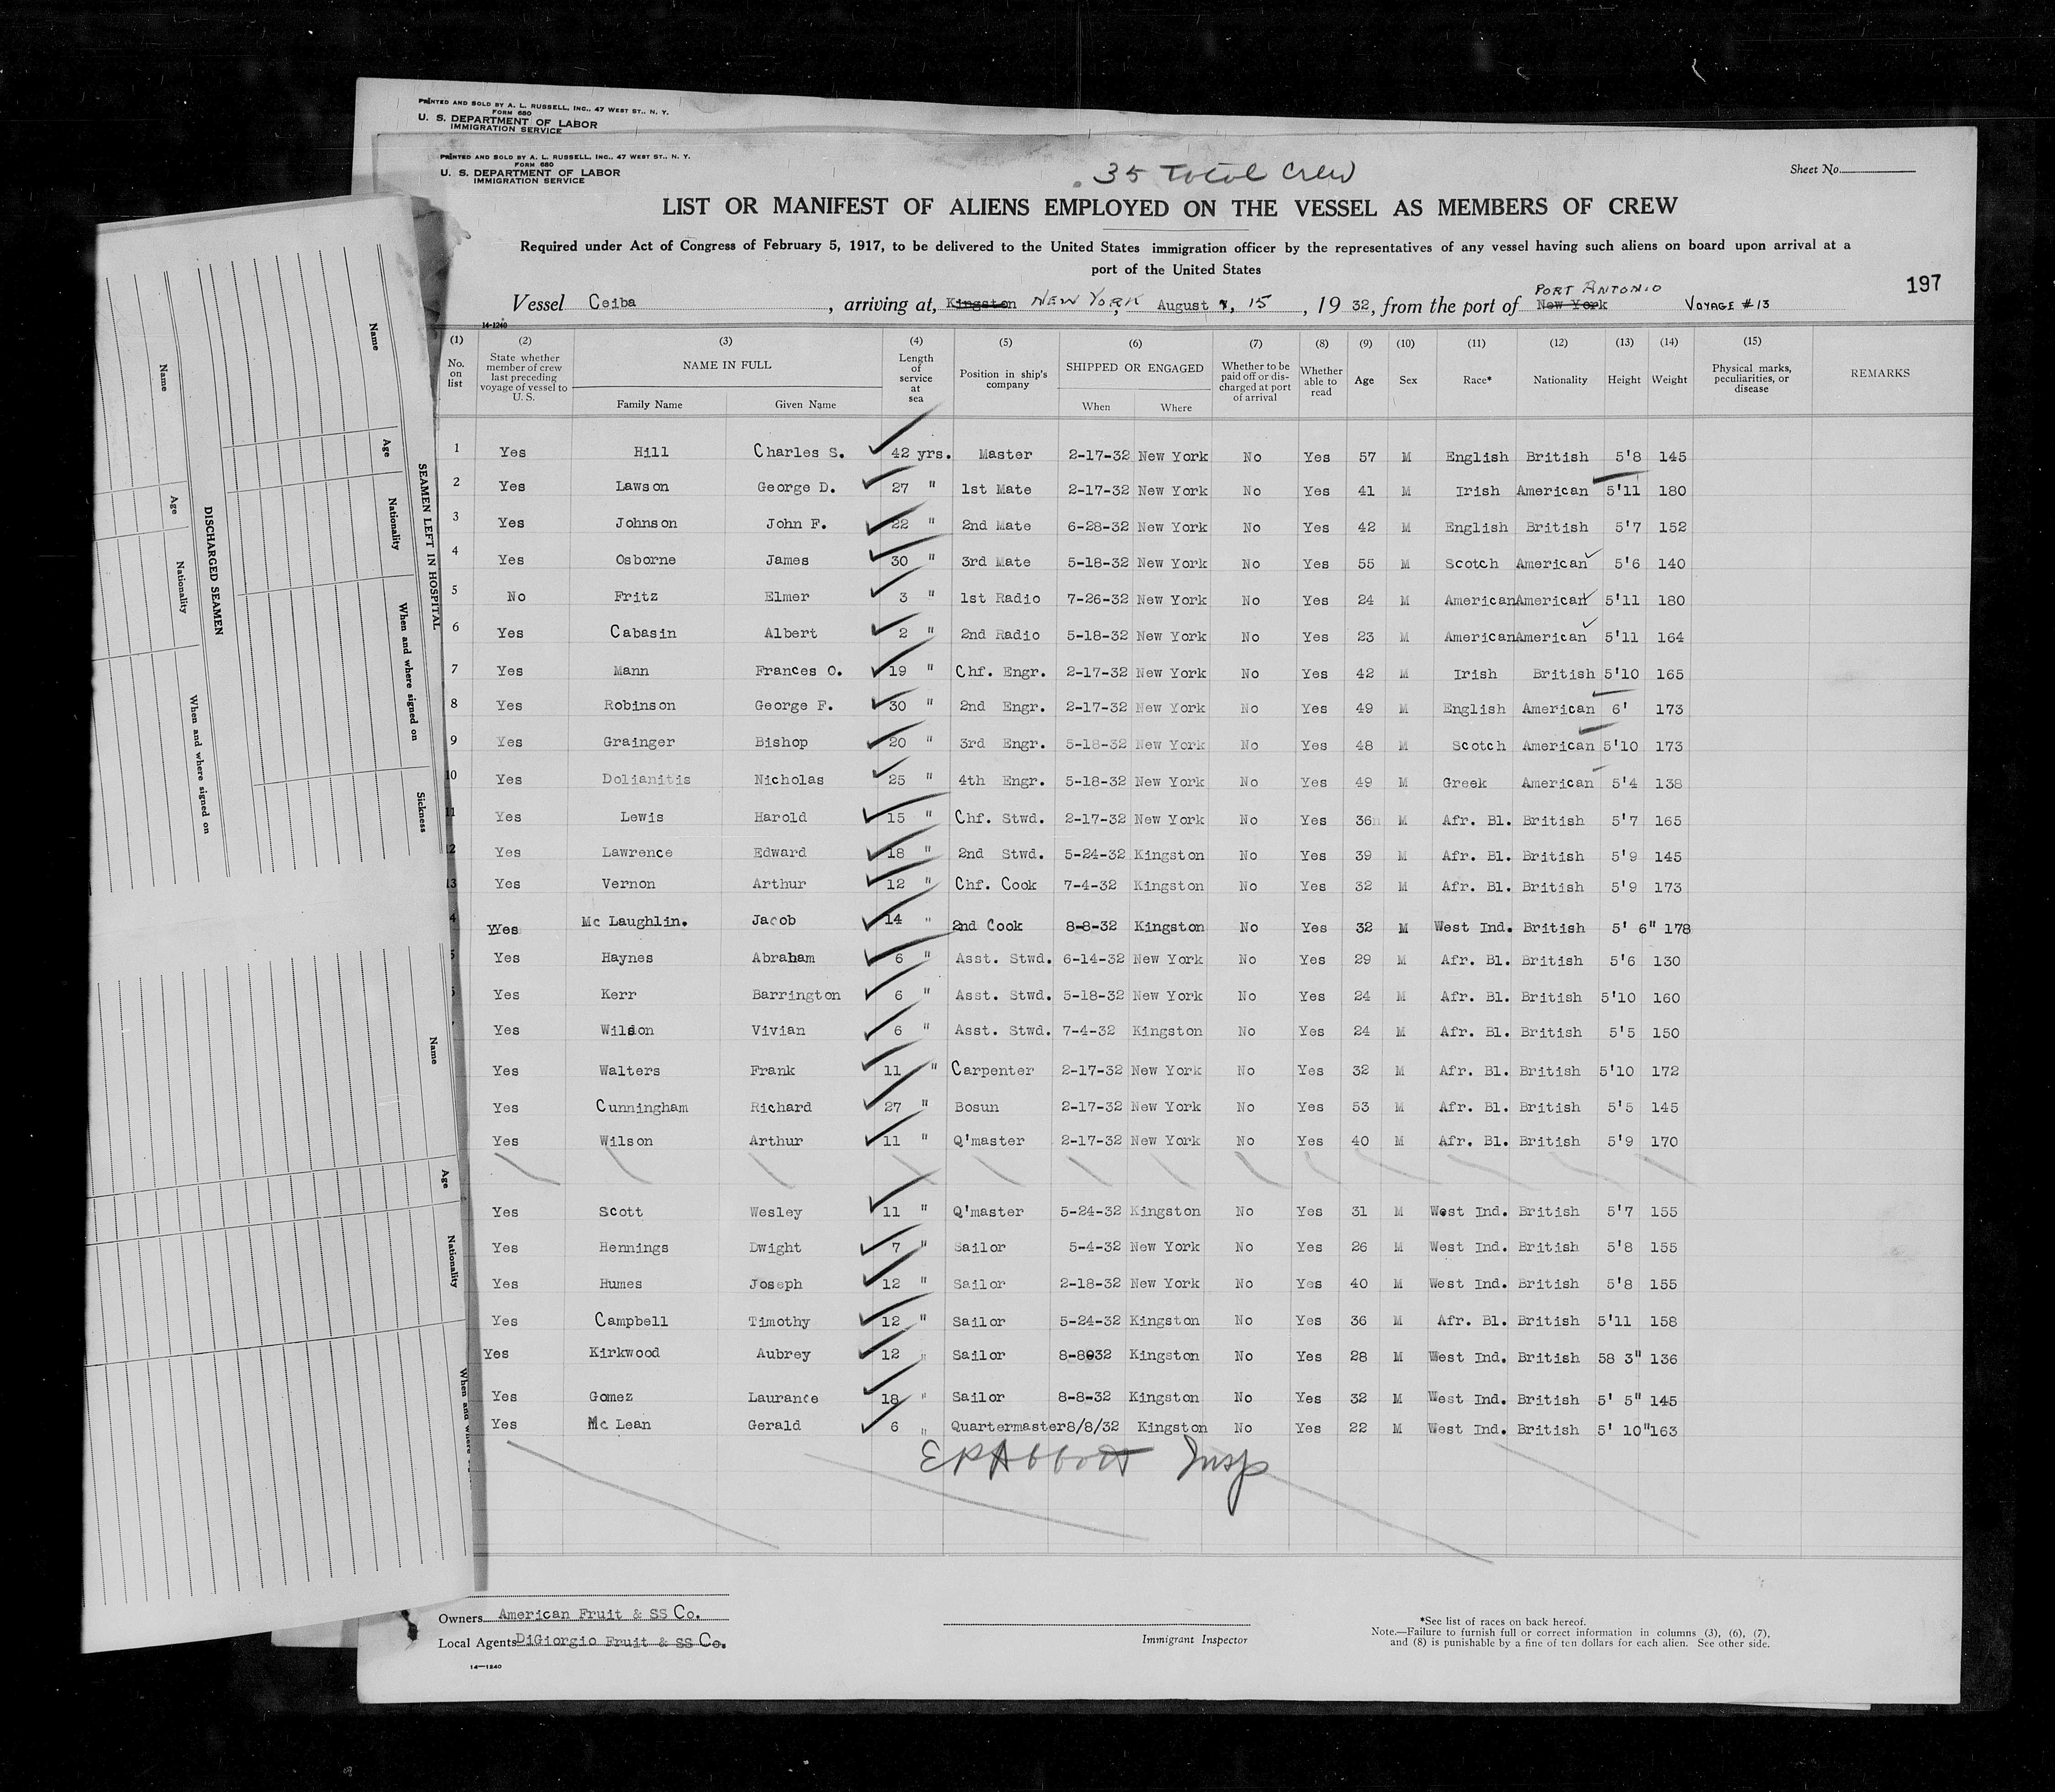 PRINTED AND SOLD BY A. L. RUSSELL, INC., 47 WEST ST., N. Y.
FORM 680
U. S. DEPARTMENT OF LABOR
IMMIGRATION SERVICE
PRINTED AND SOLD BY A. L. RUSSELL, INC., 47 WEST ST., N. Y.
FORM 680
U. S. DEPARTMENT OF LABOR
IMMIGRATION SERVICE
35 Total Crew
Sheet No.
LIST OR MANIFEST OF ALIENS EMPLOYED ON THE VESSEL AS MEMBERS OF CREW
Required under Act of Congress of February 5, 1917, to be delivered to the United States immigration officer by the representatives of any vessel having such aliens on board upon arrival at a
port of the United States
197
Vessel Ceiba, arriving at, Kingston NEW YORK, August 15, 1932, from the port of New York PORT ANTONIO VOYAGE #13
14-1240
(1) (2) (3) (4) (5) (6) (7) (8) (9) (10) (11) (12) (13) (14) (15)
No. on list State whether member of crew last preceding voyage of vessel to U. S. NAME IN FULL Family Name Given Name Length of service at sea Position in ship's company SHIPPED OR ENGAGED When Where Whether to be paid off or discharged at port of arrival Whether able to read Age Sex Race* Nationality Height Weight Physical marks, peculiarities, or disease REMARKS
1 Yes Hill Charles S. 42 yrs. Master 2-17-32 New York No Yes 57 M English British 5'8 145
2 Yes Lawson George D. 27 " 1st Mate 2-17-32 New York No Yes 41 M Irish American 5'11 180
3 Yes Johnson John F. 22 " 2nd Mate 6-28-32 New York No Yes 42 M English British 5'7 152
4 Yes Osborne James 30 " 3rd Mate 5-18-32 New York No Yes 55 M Scotch American 5'6 140
5 No Fritz Elmer 3 " 1st Radio 7-26-32 New York No Yes 24 M American American 5'11 180
6 Yes Cabasin Albert 2 " 2nd Radio 5-18-32 New York No Yes 23 M American American 5'11 164
7 Yes Mann Frances O. 19 " Chf. Engr. 2-17-32 New York No Yes 42 M Irish British 5'10 165
8 Yes Robinson George F. 30 " 2nd Engr. 2-17-32 New York No Yes 49 M English American 6' 173
9 Yes Grainger Bishop 20 " 3rd Engr. 5-18-32 New York No Yes 48 M Scotch American 5'10 173
10 Yes Dolianitis Nicholas 25 " 4th Engr. 5-18-32 New York No Yes 49 M Greek American 5'4 138
11 Yes Lewis Harold 15 " Chf. Stwd. 2-17-32 New York No Yes 36 M Afr. Bl. British 5'7 165
12 Yes Lawrence Edward 18 " 2nd Stwd. 5-24-32 Kingston No Yes 39 M Afr. Bl. British 5'9 145
13 Yes Vernon Arthur 12 " Chf. Cook 7-4-32 Kingston No Yes 32 M Afr. Bl. British 5'9 173
4 Yes Mc Laughlin. Jacob 14 " 2nd Cook 8-8-32 Kingston No Yes 32 M West Ind. British 5' 6" 178
5 Yes Haynes Abraham 6 " Asst. Stwd. 6-14-32 New York No Yes 29 M Afr. Bl. British 5'6 130
Yes Kerr Barrington 6 " Asst. Stwd. 5-18-32 New York No Yes 24 M Afr. Bl. British 5'10 160
Yes Wilson Vivian 6 " Asst. Stwd. 7-4-32 Kingston No Yes 24 M Afr. Bl. British 5'5 150
Yes Walters Frank 11 " Carpenter 2-17-32 New York No Yes 32 M Afr. Bl. British 5'10 172
Yes Cunningham Richard 27 " Bosun 2-17-32 New York No Yes 53 M Afr. Bl. British 5'5 145
Yes Wilson Arthur 11 " Q'master 2-17-32 New York No Yes 40 M Afr. Bl. British 5'9 170
Yes Scott Wesley 11 " Q'master 5-24-32 Kingston No Yes 31 M West Ind. British 5'7 155
Yes Hennings Dwight 7 " Sailor 5-4-32 New York No Yes 26 M West Ind. British 5'8 155
Yes Humes Joseph 12 " Sailor 2-18-32 New York No Yes 40 M West Ind. British 5'8 155
Yes Campbell Timothy 12 " Sailor 5-24-32 Kingston No Yes 36 M Afr. Bl. British 5'11 158
Yes Kirkwood Aubrey 12 " Sailor 8-8032 Kingston No Yes 28 M West Ind. British 58 3" 136
Yes Gomez Laurance 18 " Sailor 8-8-32 Kingston No Yes 32 M West Ind. British 5' 5" 145
Yes Mc Lean Gerald 6 " Quartermaster 8/8/32 Kingston No Yes 22 M West Ind. British 5' 10" 163
E R Abbott Insp
Owners American Fruit & SS Co.
Local Agents DiGiorgio Fruit & SS Co.
14—1240
Immigrant Inspector
*See list of races on back hereof.
Note.—Failure to furnish full or correct information in columns (3), (6), (7),
and (8) is punishable by a fine of ten dollars for each alien. See other side.
SEAMEN LEFT IN HOSPITAL
Name Age Nationality When and where signed on Sickness
DISCHARGED SEAMEN
Name Age Nationality When and where signed on
Name Age Nationality When and where